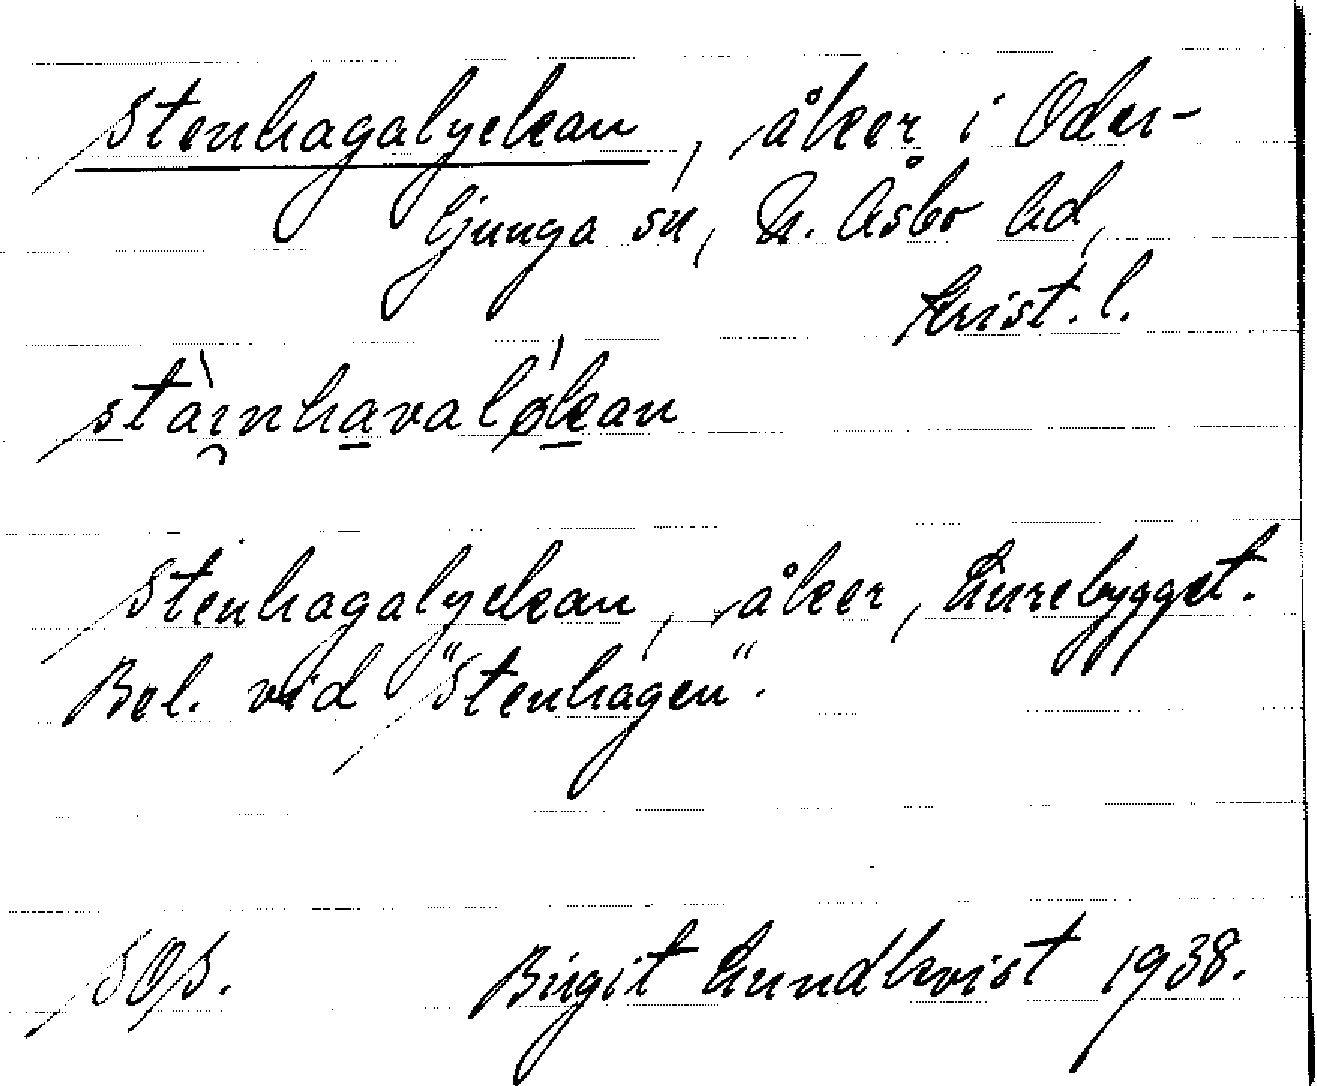 Stenhagalyckan, åker i Oder-
ljunga sn, N. Åsbo hd,
Krist. l.
stàinhavaløkan
Stenhagalyckan, åker, Lurebygget.
Bel. vid "Stenhagen".
SOS. Birgit Lundkvist 1938.